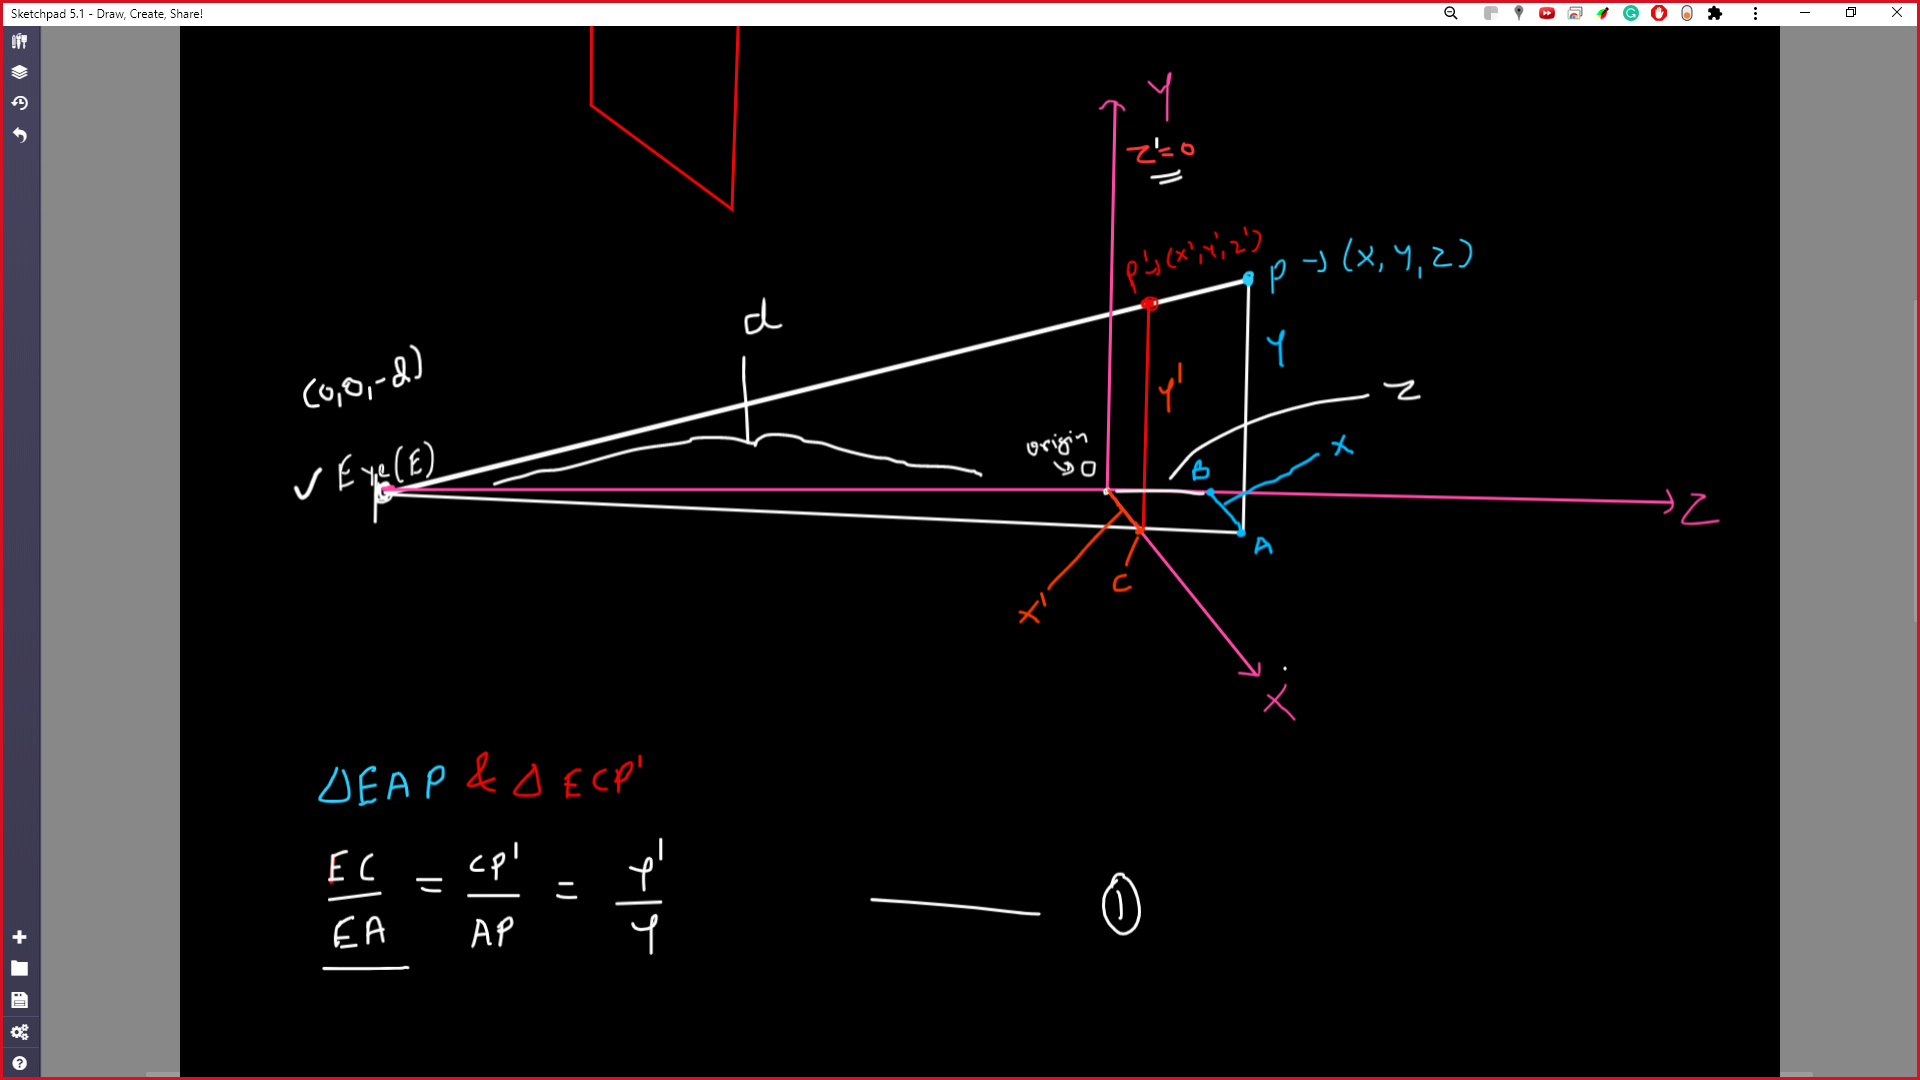 Sketchpad 5.1 - Draw, Create, Share!
Y
z'=0
P'→(x',y',z')
P → (x, y, z)
d
y
(0,0,-d)
y'
z
origin
→0
B
x
Eye(E)
Z
A
C
x'
X
ΔEAP & Δ ECP'
EC/EA = CP'/AP = y'/y ——— ①